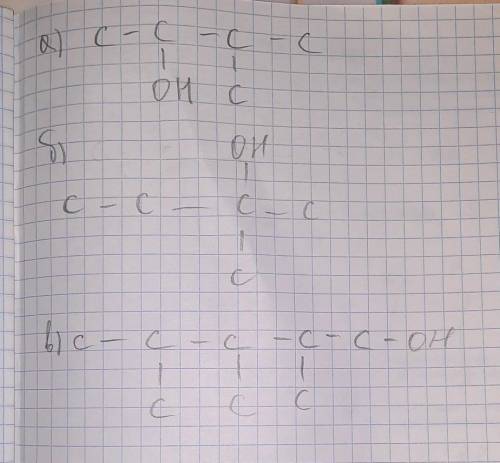 а) C - C - C - C
OH C
б) OH
C - C - C - C
C
в) C - C - C - C - C - OH
C C C